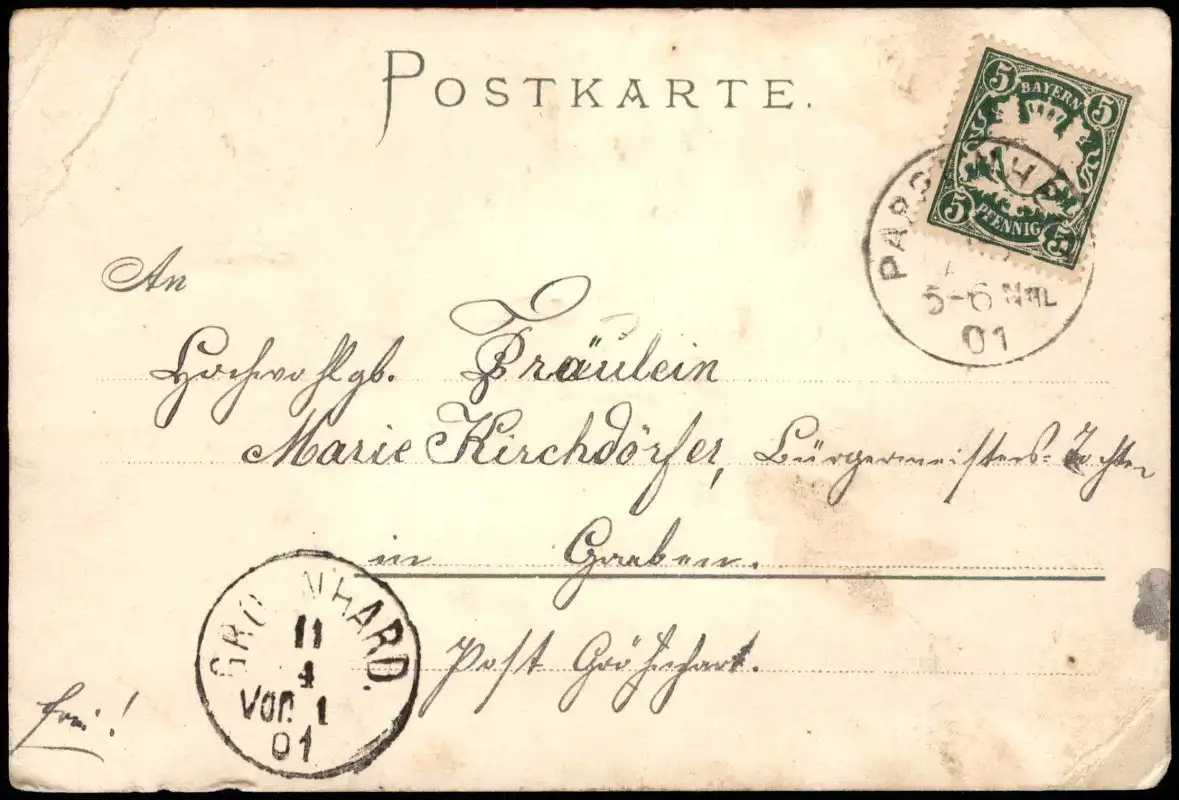 POSTKARTE.
5 BAYERN 5
5 PFENNIG 5
5-6 Nm.
01
An
Hochwohlgb. Fräulein
Marie Kirchdörfer, Bürgermeisters-Tochter
in Graben.
Post Gröhnhart.
11
4
Vor. 1
01
frei!